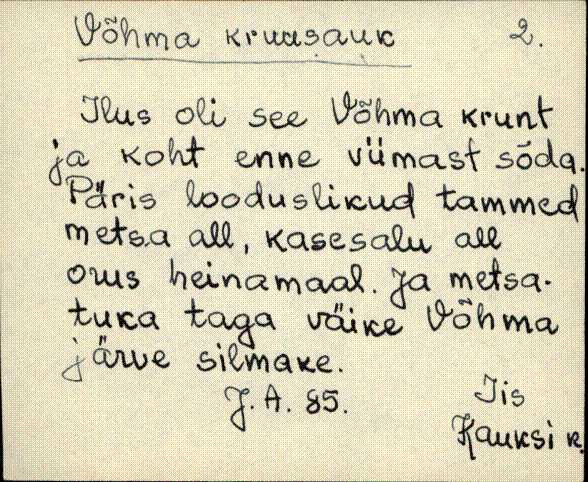 Võhma kruusauk 2.
Ilus oli see Võhma krunt
ja koht enne viimast sõda.
Päris looduslikud tammed
metsa all, kasesalu all
orus heinamaal. Ja metsa-
tuka taga väike Võhma
järve silmake.
J. A. 85. Iis
Kauksi k.